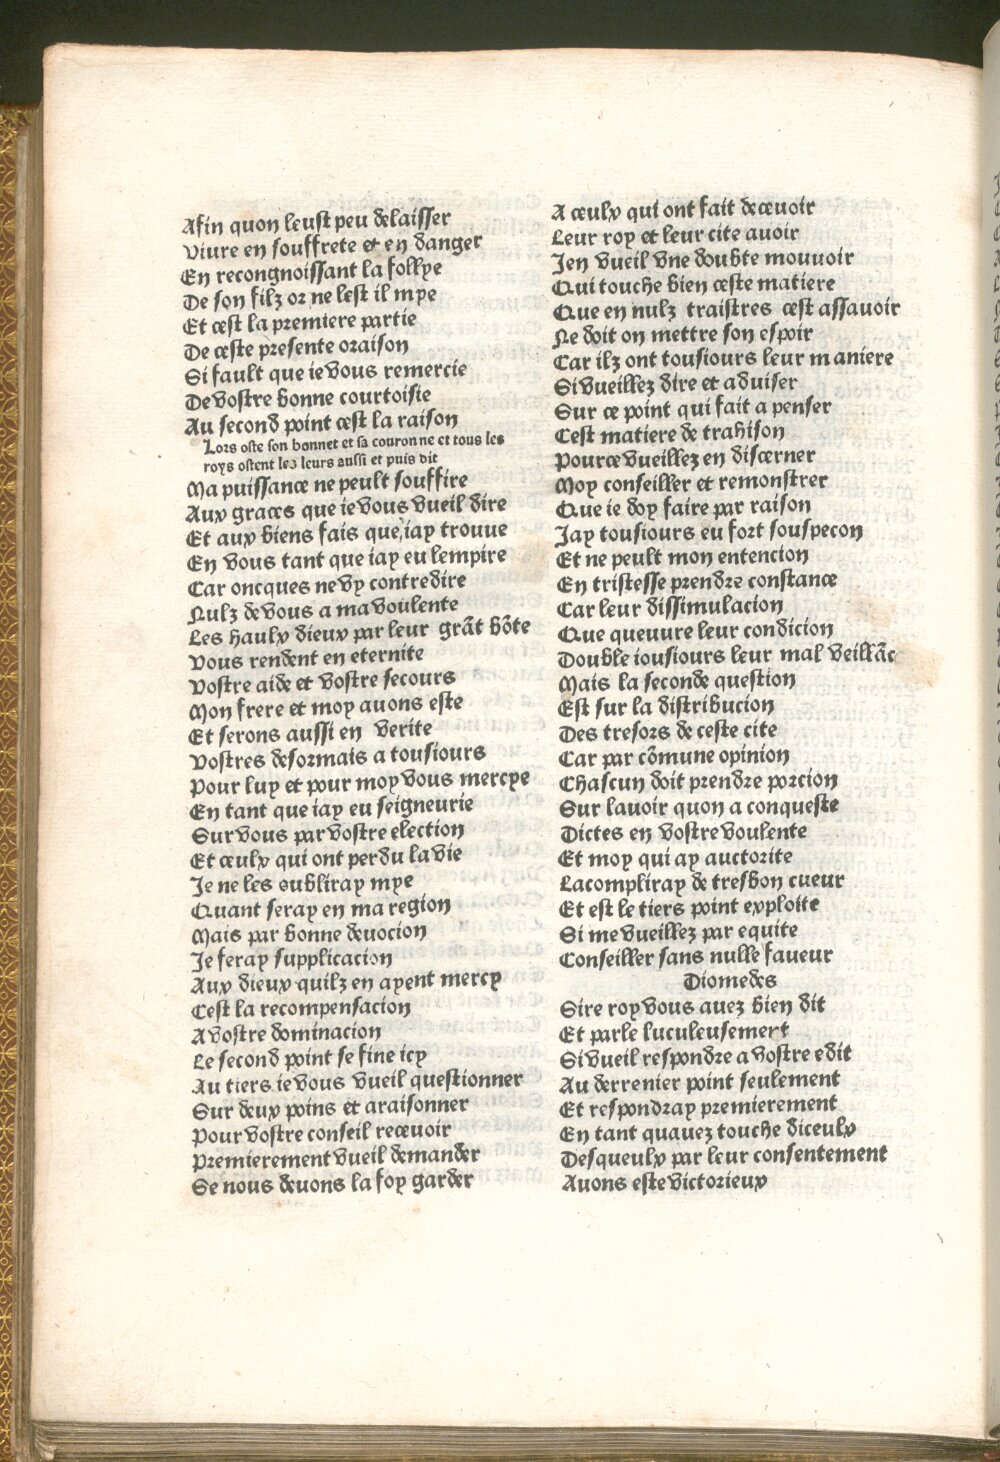 Afin quon leust peu delaisser
Viure en souffrete et en danger
En recongnoissant la follye
De son filz or ne lest il mye
Et cest la premiere partie
De ceste presente oraison
Si fault que ie vous remercie
De vostre bonne courtoisie
Au second point cest la raison
Lors oste son bonnet et sa couronne et tous les
roys ostent les leurs aussi et puis dit
Ma puissance ne peult souffire
Aux graces que ie vous vueil dire
Et aux biens fais que iay trouue
En vous tant que iay eu lempire
Car oncques ne vy contredire
Nulz de vous a ma voulente
Les haulx dieux par leur grãt bõte
Vous rendent en eternite
Vostre aide et vostre secours
Mon frere et moy auons este
Et serons aussi en verite
Vostres desormais a tousiours
Pour luy et pour moy vous mercye
En tant que iay eu seigneurie
Sur vous par vostre election
Et ceulx qui ont perdu la vie
Je ne les oubliray mye
Quant seray en ma region
Mais par bonne deuocion
Je feray supplicacion
Aux dieux quilz en ayent mercy
Cest la recompensacion
A vostre dominacion
Le second point se fine icy
Au tiers ie vous vueil questionner
Sur deux poins et araisonner
Pour vostre conseil receuoir
Premierement vueil demander
Se nous deuons la foy garder
A ceulx qui ont fait deceuoir
Leur roy et leur cite auoir
Jen vueil vne doubte mouuoir
Qui touche bien ceste matiere
Que en nulz traistres cest assauoir
Ne doit on mettre son espoir
Car ilz ont tousiours leur maniere
Si vueillez dire et aduiser
Sur ce point qui fait a penser
Cest matiere de trahison
Pource vueillez en discerner
Moy conseiller et remonstrer
Que ie doy faire par raison
Jay tousiours eu fort souspecon
Et ne peult mon entencion
En tristesse prendre constance
Car leur dissimulacion
Que queuure leur condicion
Double iousiours leur mal veillãc
Mais la seconde question
Est sur la distribucion
Des tresors de ceste cite
Car par cõmune opinion
Chascun doit prendre porcion
Sur lauoir quon a conqueste
Dictes en vostre voulente
Et moy qui ay auctorite
Lacompliray de tresbon cueur
Et est le tiers point exploite
Si me vueillez par equite
Conseiller sans nulle faueur
Diomedes
Sire roy vous auez bien dit
Et parle luculeusement
Si vueil respondre a vostre edit
Au derrenier point seulement
Et respondray premierement
En tant quauez touche diceulx
Desqueulx par leur consentement
Auons este victorieux